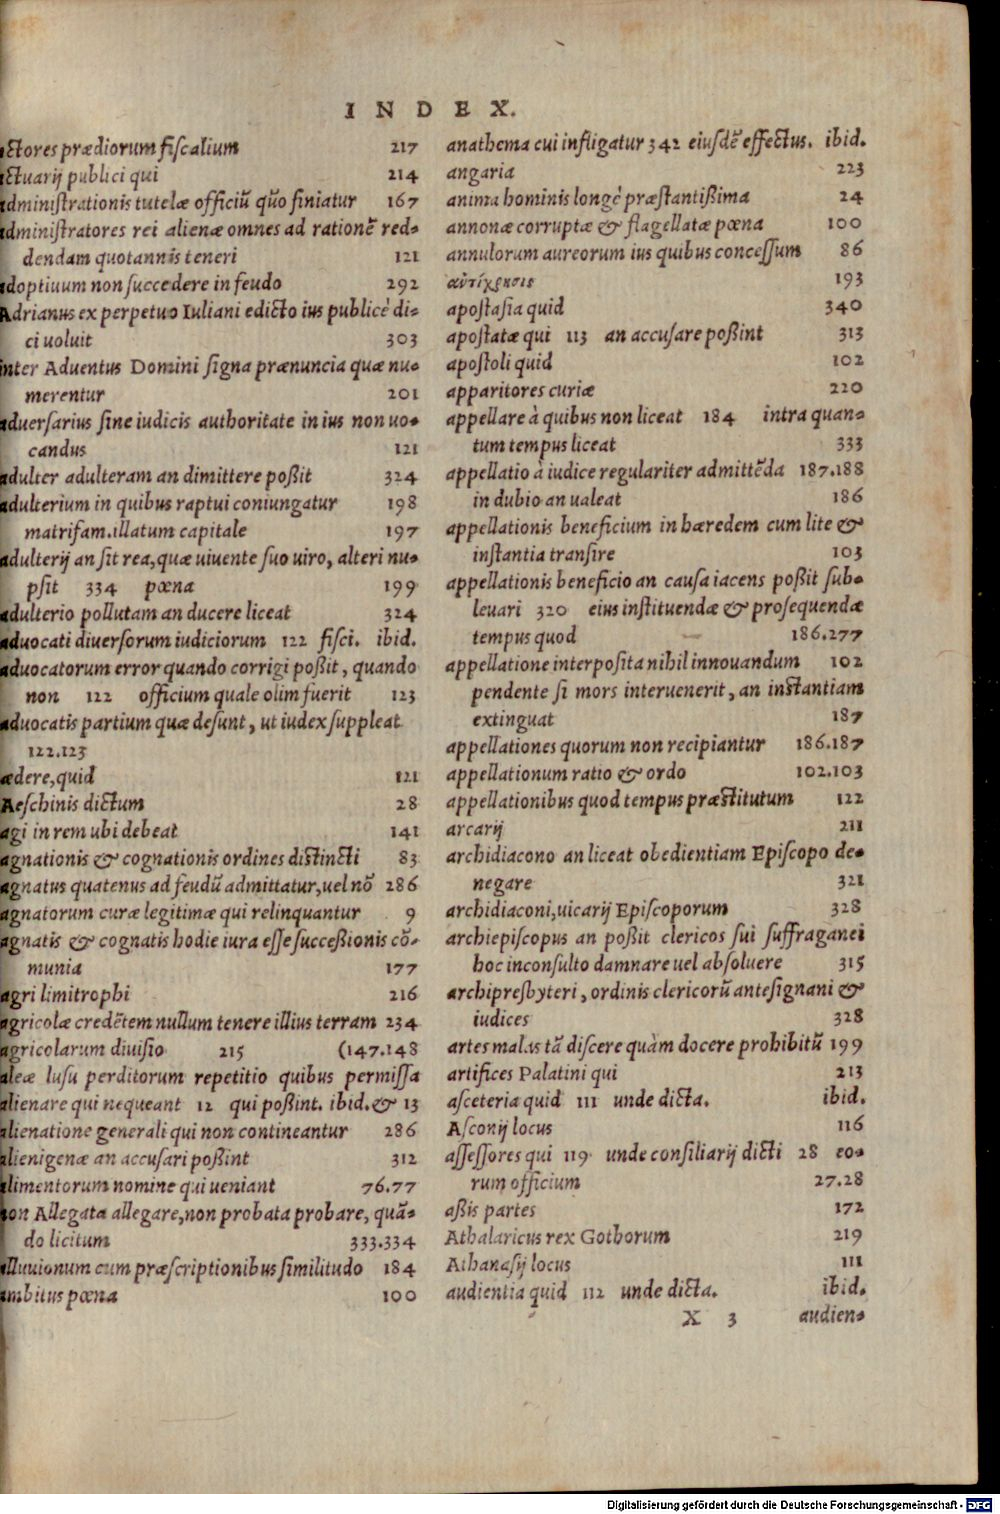 INDEX.
ctores prædiorum fiſcalium 217
ctuarij publici qui 214
dminiſtrationis tutelæ officiũ quo finiatur 167
dminiſtratores rei alienæ omnes ad rationẽ red-
dendam quotannis teneri 121
doptiuum non ſuccedere in feudo 292
Adrianus ex perpetuo Iuliani edicto ius publicè di-
ci uoluit 303
inter Aduentus Domini ſigna prænuncia quæ nu-
merentur 201
aduerſarius ſine iudicis authoritate in ius non uo-
candus 121
adulter adulteram an dimittere poßit 324
adulterium in quibus raptui coniungatur 198
matrifam.illatum capitale 197
adulterij an ſit rea, quæ uiuente ſuo uiro, alteri nu-
pſit 334 pœna 199
adulterio pollutam an ducere liceat 324
aduocati diuerſorum iudiciorum 122 fiſci. ibid.
aduocatorum error quando corrigi poßit, quando
non 122 officium quale olim fuerit 123
aduocatis partium quæ deſunt, ut iudex ſuppleat
122.123
ædere, quid 121
Aeſchinis dictum 28
agi in rem ubi debeat 141
agnationis & cognationis ordines diſtincti 83
agnatus quatenus ad feudũ admittatur, uel nõ 286
agnatorum curæ legitimæ qui relinquantur 9
agnatis & cognatis hodie iura eſſe ſucceßionis cõ-
munia 177
agri limitrophi 216
agricolæ credẽtem nullum tenere illius terram 234
agricolarum diuiſio 215 (147.148
aleæ luſu perditorum repetitio quibus permiſſa
alienare qui nequeant 12 qui poßint. ibid. & 13
alienatione generali qui non contineantur 286
alienigenæ an accuſari poßint 312
alimentorum nomine qui ueniant 76.77
non Allegata allegare, non probata probare, quã-
do licitum 333.334
alluuionum cum præſcriptionibus ſimilitudo 184
ambitus pœna 100
anathema cui infligatur 342 eiuſdẽ effectus. ibid.
angaria 223
anima hominis longè præſtantißima 24
annonæ corruptæ & flagellatæ pœna 100
annulorum aureorum ius quibus conceſſum 86
ἀντίχρησις 193
apoſtaſia quid 340
apoſtatæ qui 113 an accuſare poßint 313
apoſtoli quid 102
apparitores curiæ 220
appellare à quibus non liceat 184 intra quan-
tum tempus liceat 333
appellatio à iudice regulariter admittẽda 187.188
in dubio an ualeat 186
appellationis beneficium in hæredem cum lite &
inſtantia tranſire 103
appellationis beneficio an cauſa iacens poßit ſub-
leuari 320 eius inſtituendæ & proſequendæ
tempus quod 186.277
appellatione interpoſita nihil innouandum 102
pendente ſi mors interuenerit, an inſtantiam
extinguat 187
appellationes quorum non recipiantur 186.187
appellationum ratio & ordo 102.103
appellationibus quod tempus præſtitutum 122
arcarij 211
archidiacono an liceat obedientiam Epiſcopo de-
negare 321
archidiaconi, uicarij Epiſcoporum 328
archiepiſcopus an poßit clericos ſui ſuffraganei
hoc inconſulto damnare uel abſoluere 315
archipresbyteri, ordinis clericorũ anteſignani &
iudices 328
artes malas tã diſcere quàm docere prohibitũ 199
artifices Palatini qui 213
aſceteria quid 111 unde dicta. ibid.
Aſconij locus 116
aſſeſſores qui 119 unde conſiliarij dicti 28 eo-
rum officium 27.28
aßis partes 172
Athalaricus rex Gothorum 219
Athanaſij locus 111
audientia quid 112 unde dicta. ibid.
X 3 audien-
Digitalisierung gefördert durch die Deutsche Forschungsgemeinschaft - DFG